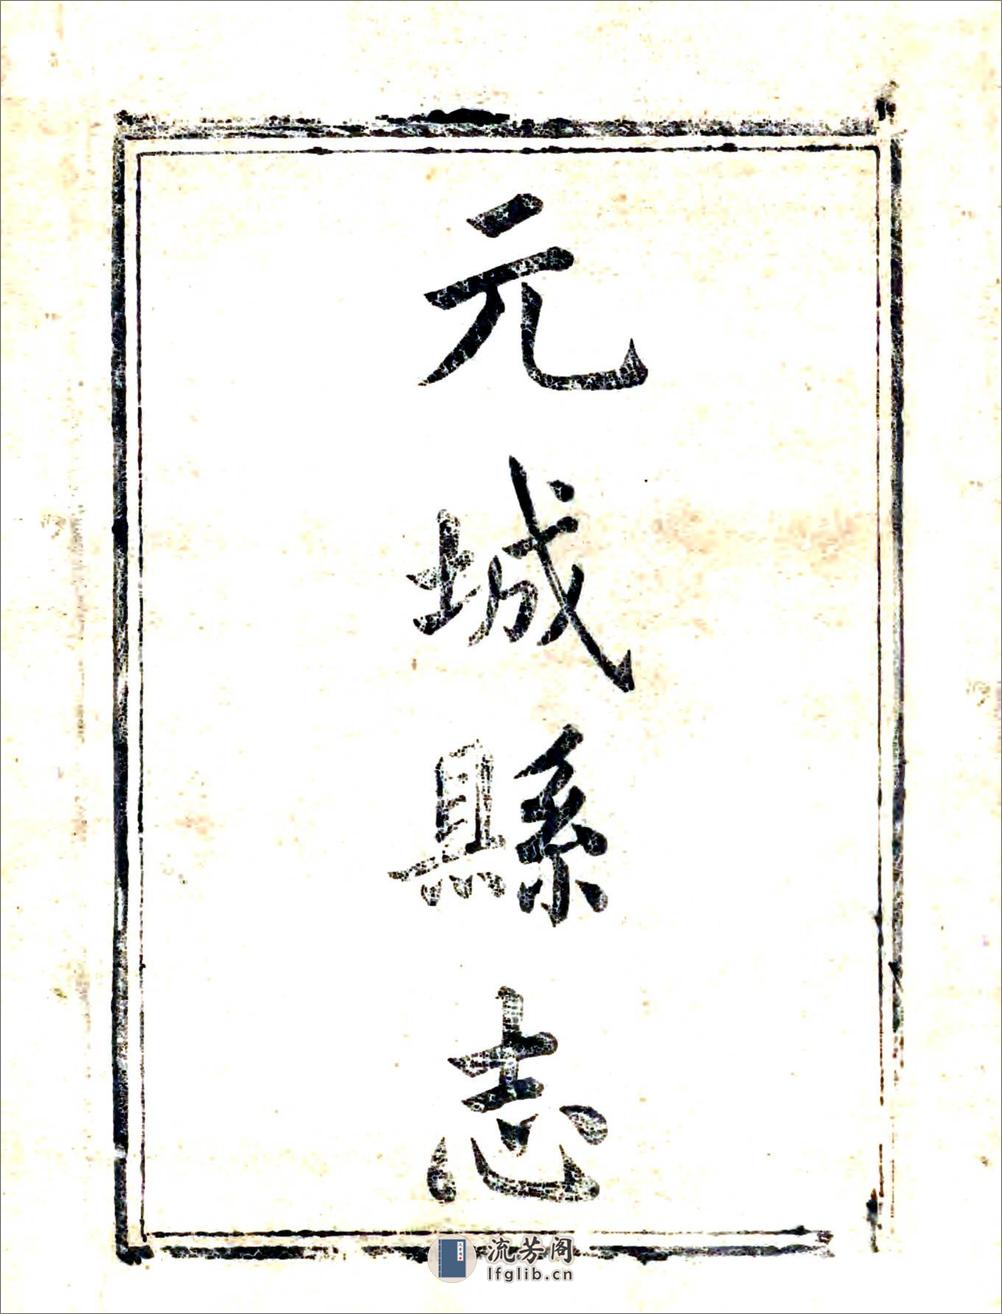 元城縣志
流芳阁
lfglib.cn